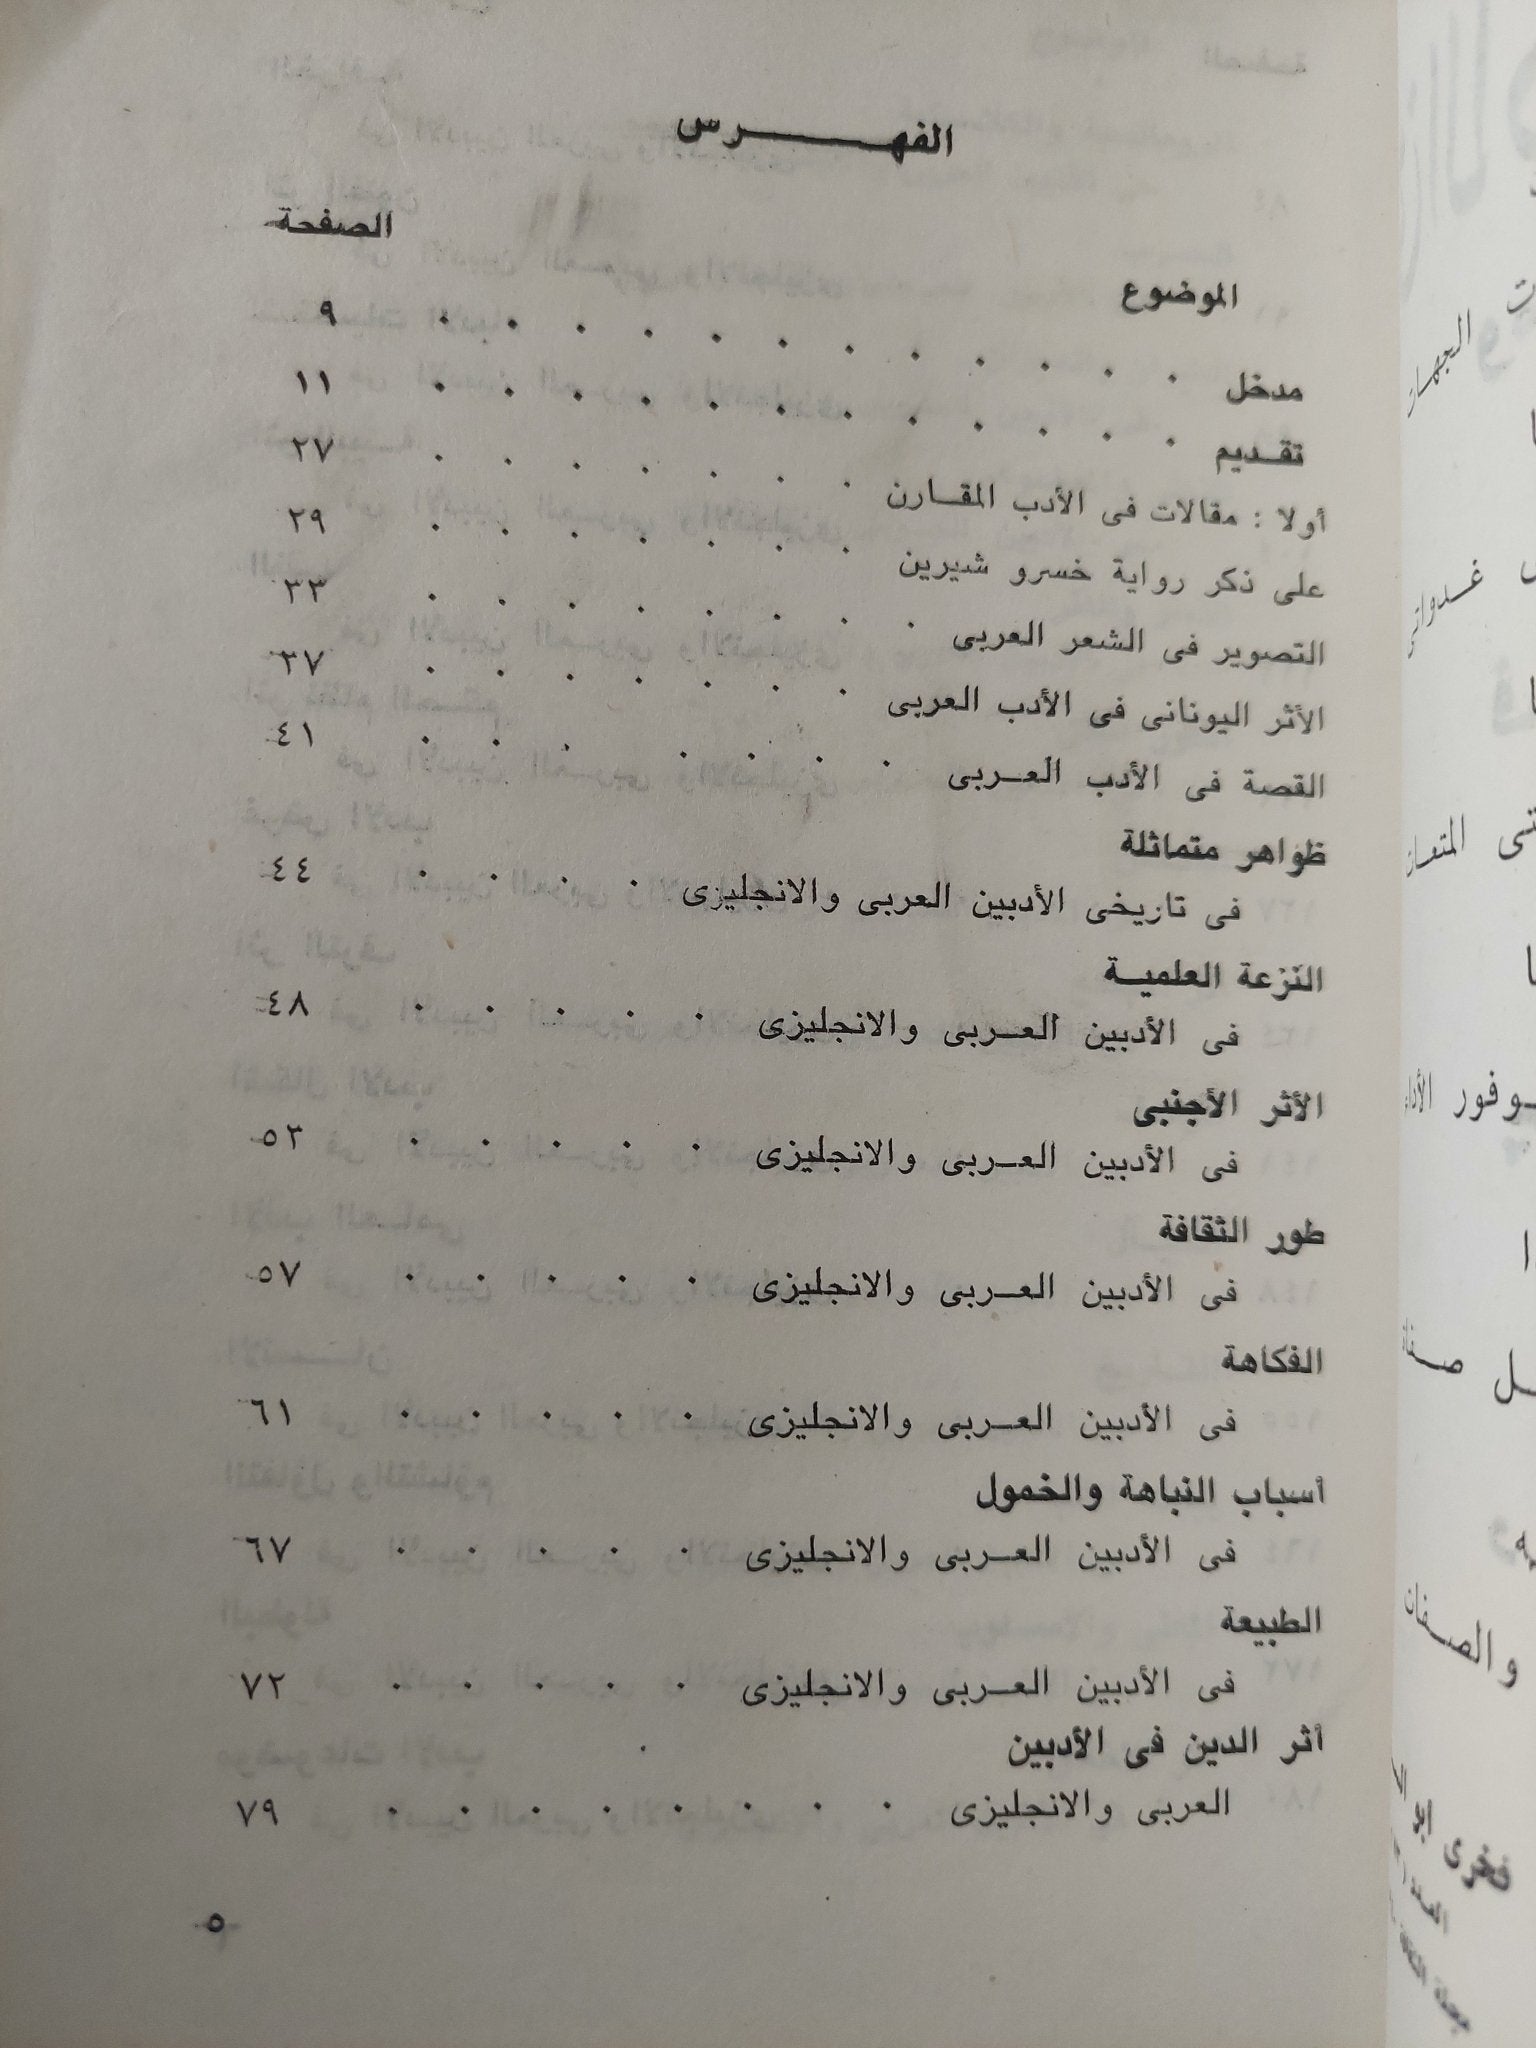 الفهرس
الصفحة
الموضوع
مدخل . . . . . . . . . . . . ٩
تقديم . . . . . . . . . . . . ١١
أولا : مقالات فى الأدب المقارن . . . . . . . ٢٧
على ذكر رواية خسرو شيرين . . . . . . . ٢٩
التصوير فى الشعر العربى . . . . . . . . ٣٣
الأثر اليونانى فى الأدب العربى . . . . . . . ٣٧
القصة فى الأدب العربى . . . . . . . ٤١
ظواهر متماثلة
فى تاريخى الأدبين العربى والانجليزى . . . . ٤٤
النزعة العلمية
فى الأدبين العربى والانجليزى . . . . . ٤٨
الأثر الأجنبى
فى الأدبين العربى والانجليزى . . . . . ٥٢
طور الثقافة
فى الأدبين العربى والانجليزى . . . . . ٥٧
الفكاهة
فى الأدبين العربى والانجليزى . . . . . ٦١
أسباب النباهة والخمول
فى الأدبين العربى والانجليزى . . . . . ٦٧
الطبيعة
فى الأدبين العربى والانجليزى . . . . . ٧٢
أثر الدين فى الأدبين
العربى والانجليزى . . . . . . . . ٧٩
٥